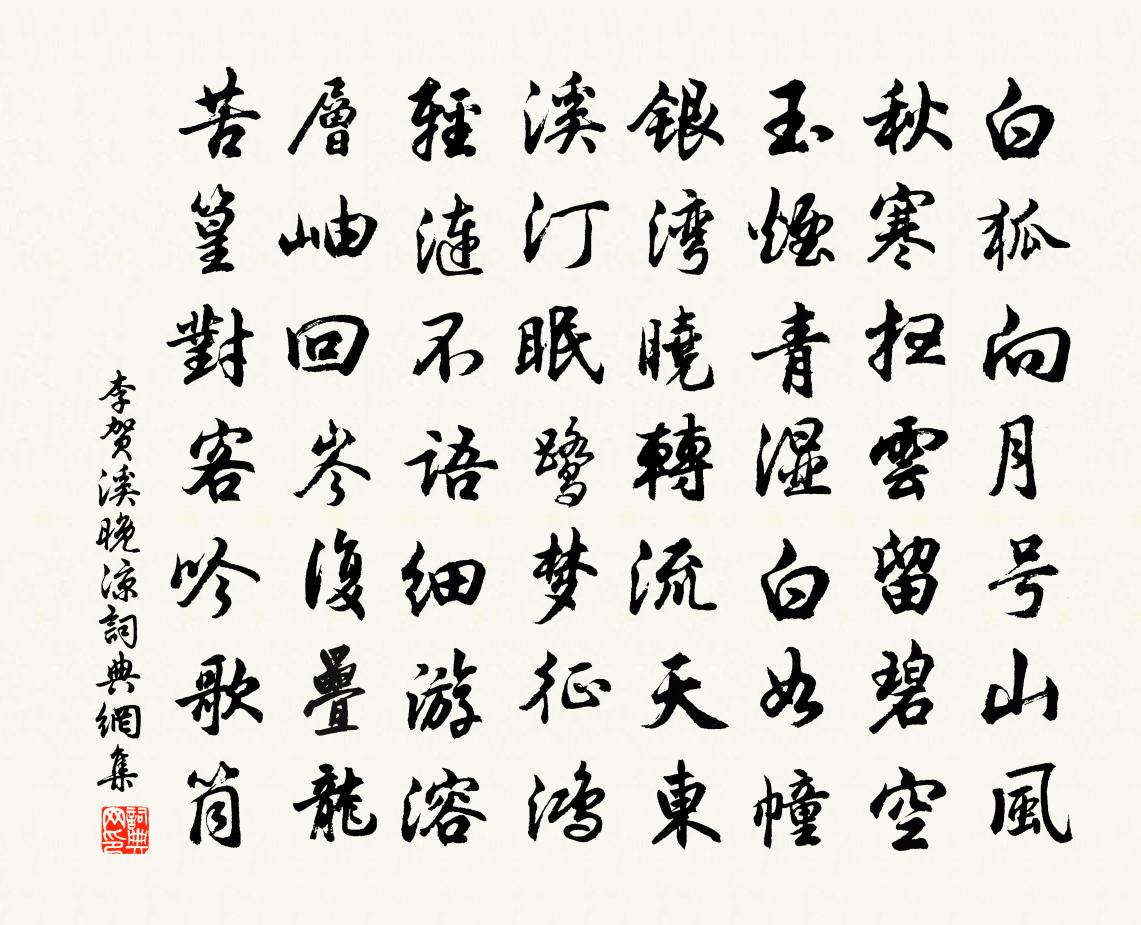 白狐向月号山風
秋寒扫雲留碧空
玉煙青湿白如幢
銀湾曉轉流天東
溪汀眠鷺梦征鴻
輕漣不語細游溶
層岫回岑復疊龍
苦篁對客吟歌筒
李贺溪晚凉詞典網集
詞典网印